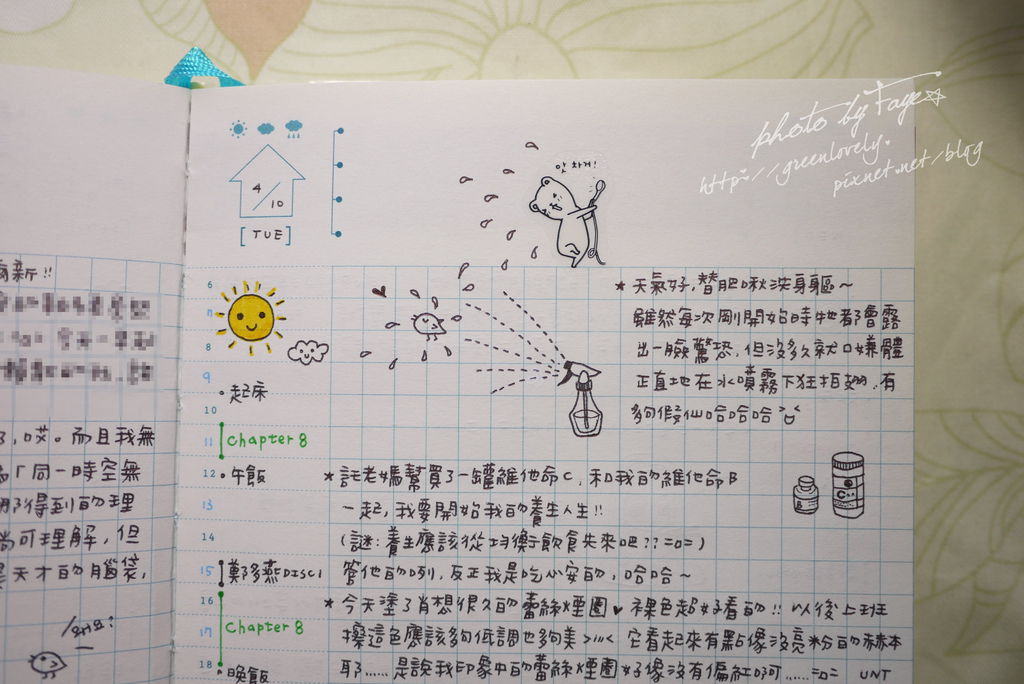 photo by Faye☆
http://greenlovely.
pixnet.net/blog
4/10
[TUE]
앗 차거!
6
7
8
9
10
11
12
13
14
15
16
17
18
起床
Chapter 8
午飯
鄭多燕DISC1
Chapter 8
晚飯
★ 天氣好,替肥啾洗身軀~
雖然每次剛開始時牠都會露
出一臉驚恐,但沒多久就口嫌體
正直地在水噴霧下狂拍翅,有
夠假仙哈哈哈
★ 託老媽幫買了一罐維他命C,和我的維他命B
一起,我要開始我的養生人生!!
(謎:養生應該從均衡飲食先來吧??=o=)
管他的咧,反正我是吃心安的,哈哈~
★ 今天塗了肖想很久的蕾絲煙圈♥裸色超好看的!! 以後上班
擦這色應該夠低調也夠美>///< 它看起來有點像沒亮粉的赫本
耶......是說我印象中的蕾絲煙圈好像沒有偏紅啊......=o= UNT
C
B
新!!
了,哎。而且我無
「同一時空無
那得到的理
尚可理解,但
天才的腦袋,